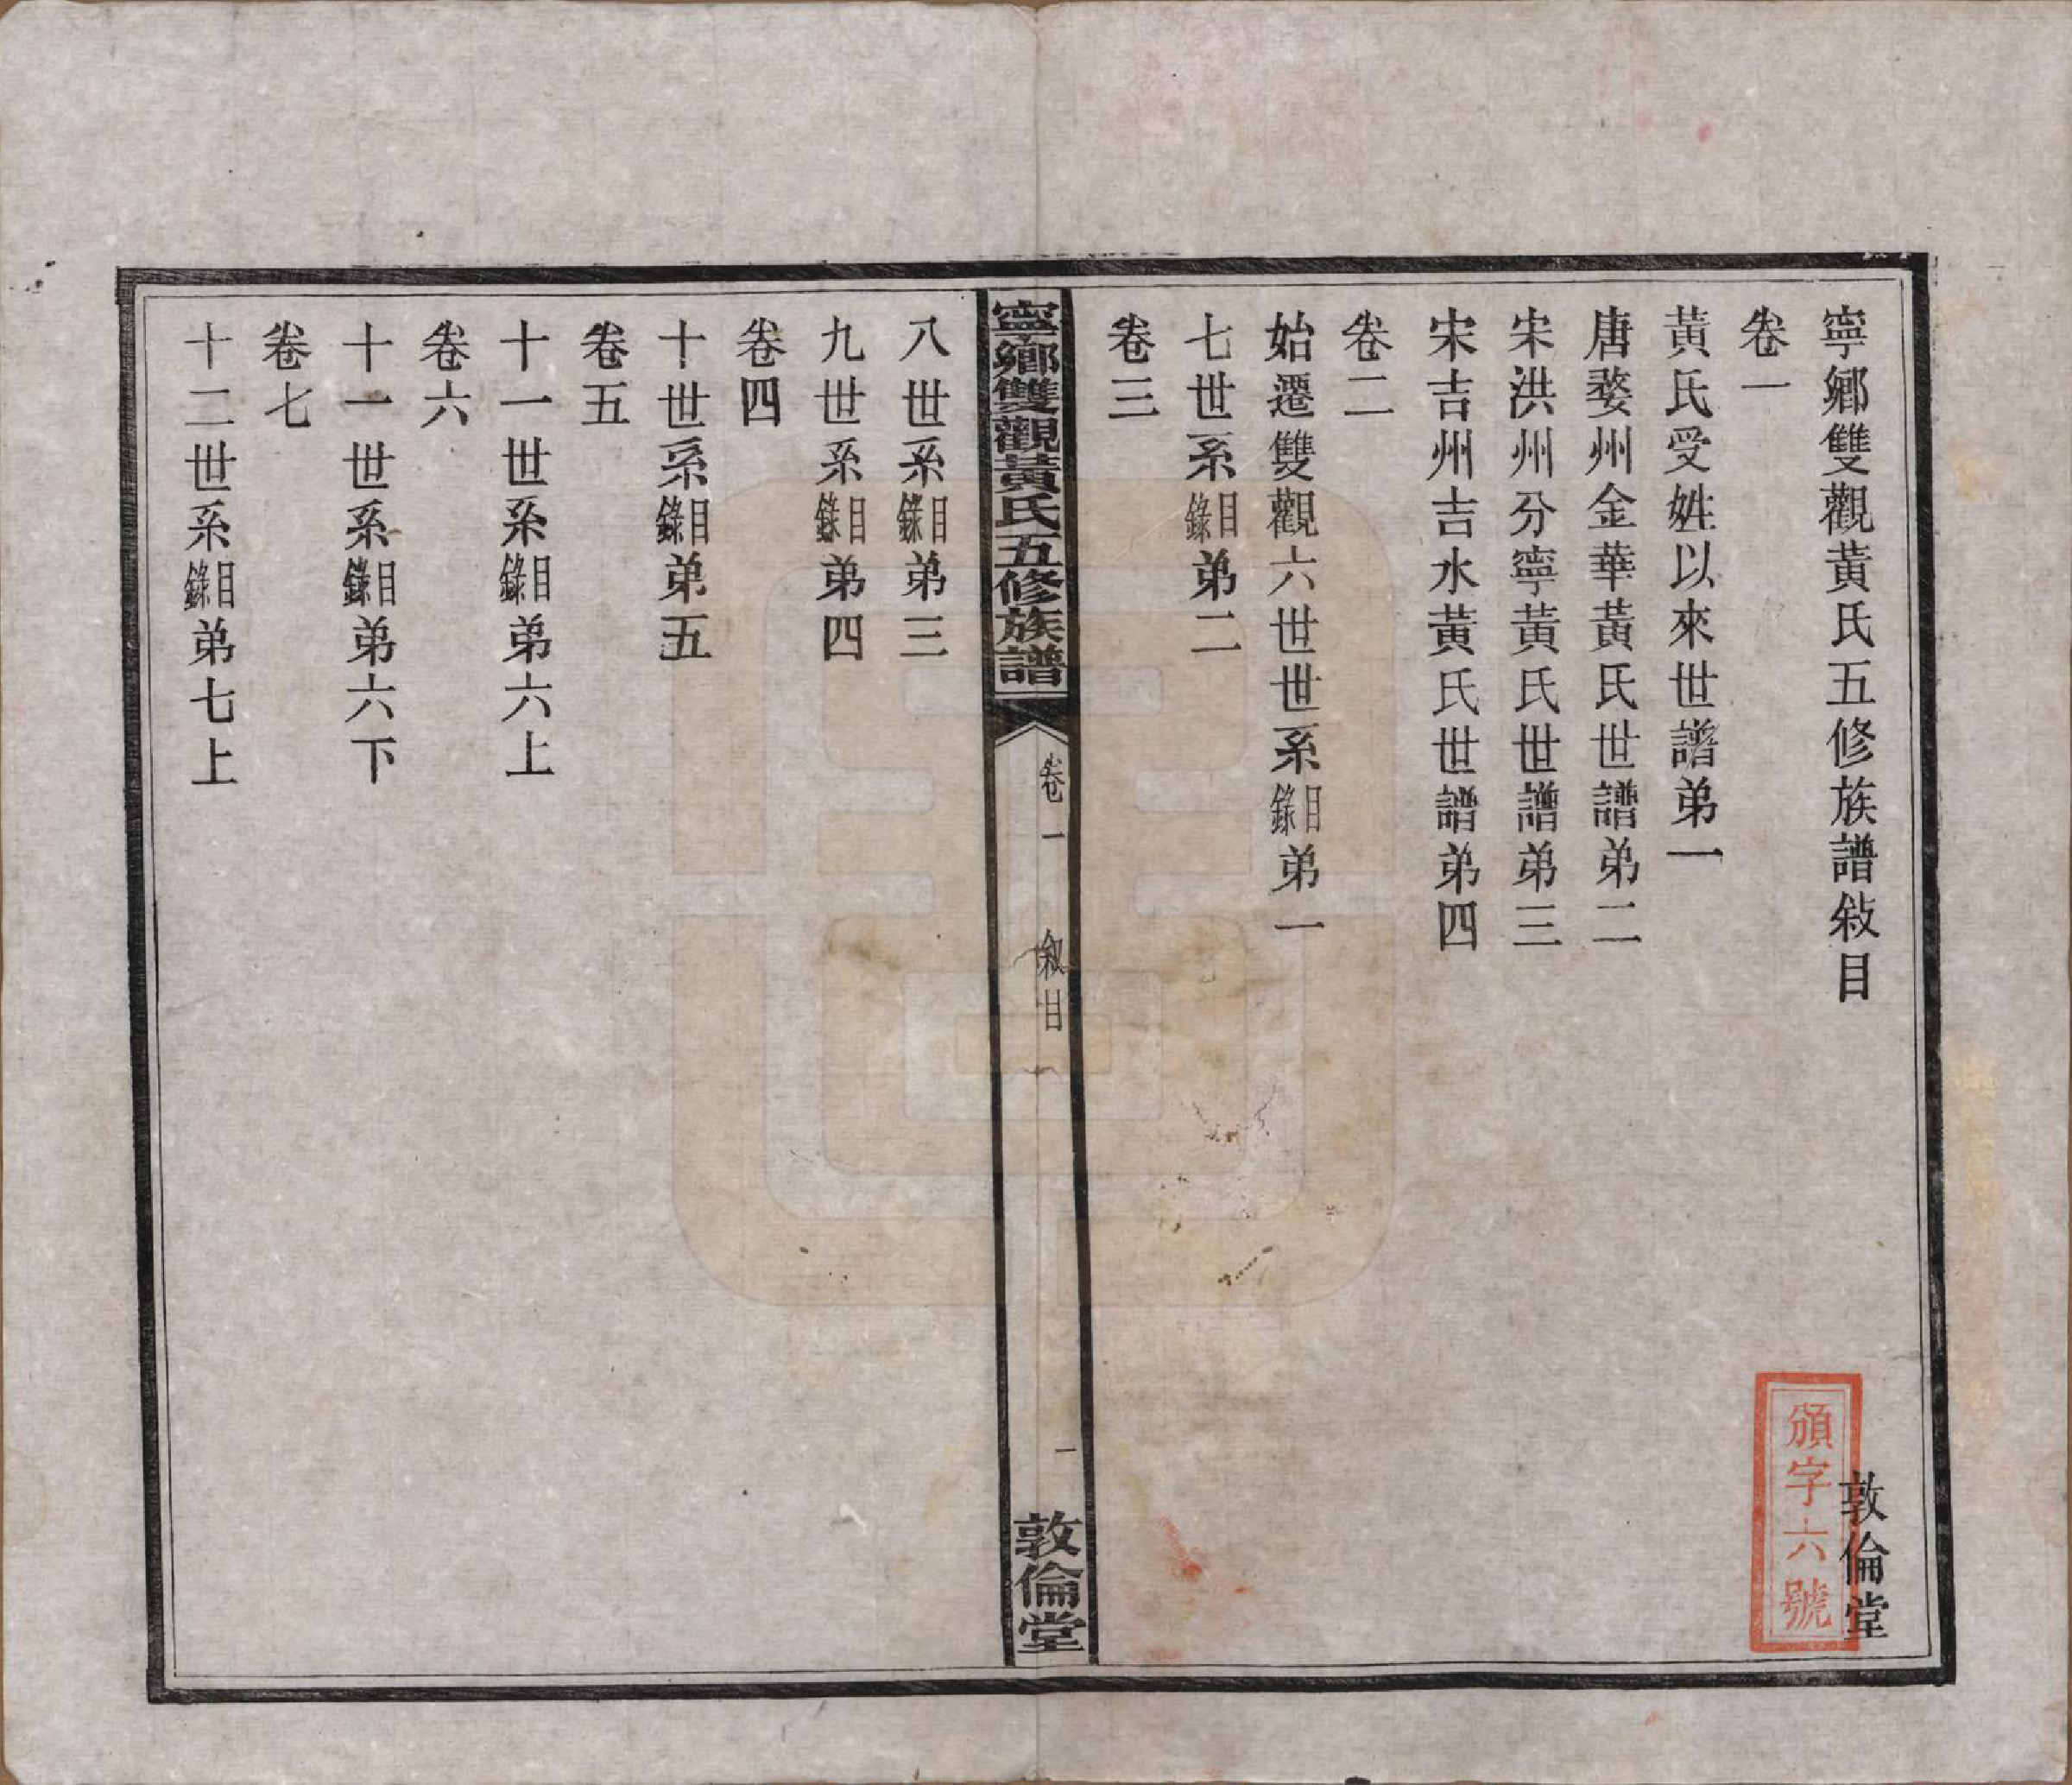 寧鄉雙觀黃氏五修族譜敍目
敦倫堂
頒字六號
卷一
黃氏受姓以來世譜弟一
唐婺州金華黃氏世譜弟二
宋洪州分寧黃氏世譜弟三
宋吉州吉水黃氏世譜弟四
卷二
始遷雙觀六世世系目錄弟一
七世系目錄弟二
卷三
寧鄉雙觀黃氏五修族譜
卷一
敘目
一
敦倫堂
八世系目錄弟三
九世系目錄弟四
卷四
十世系目錄弟五
卷五
十一世系目錄弟六上
卷六
十一世系目錄弟六下
卷七
十二世系目錄弟七上